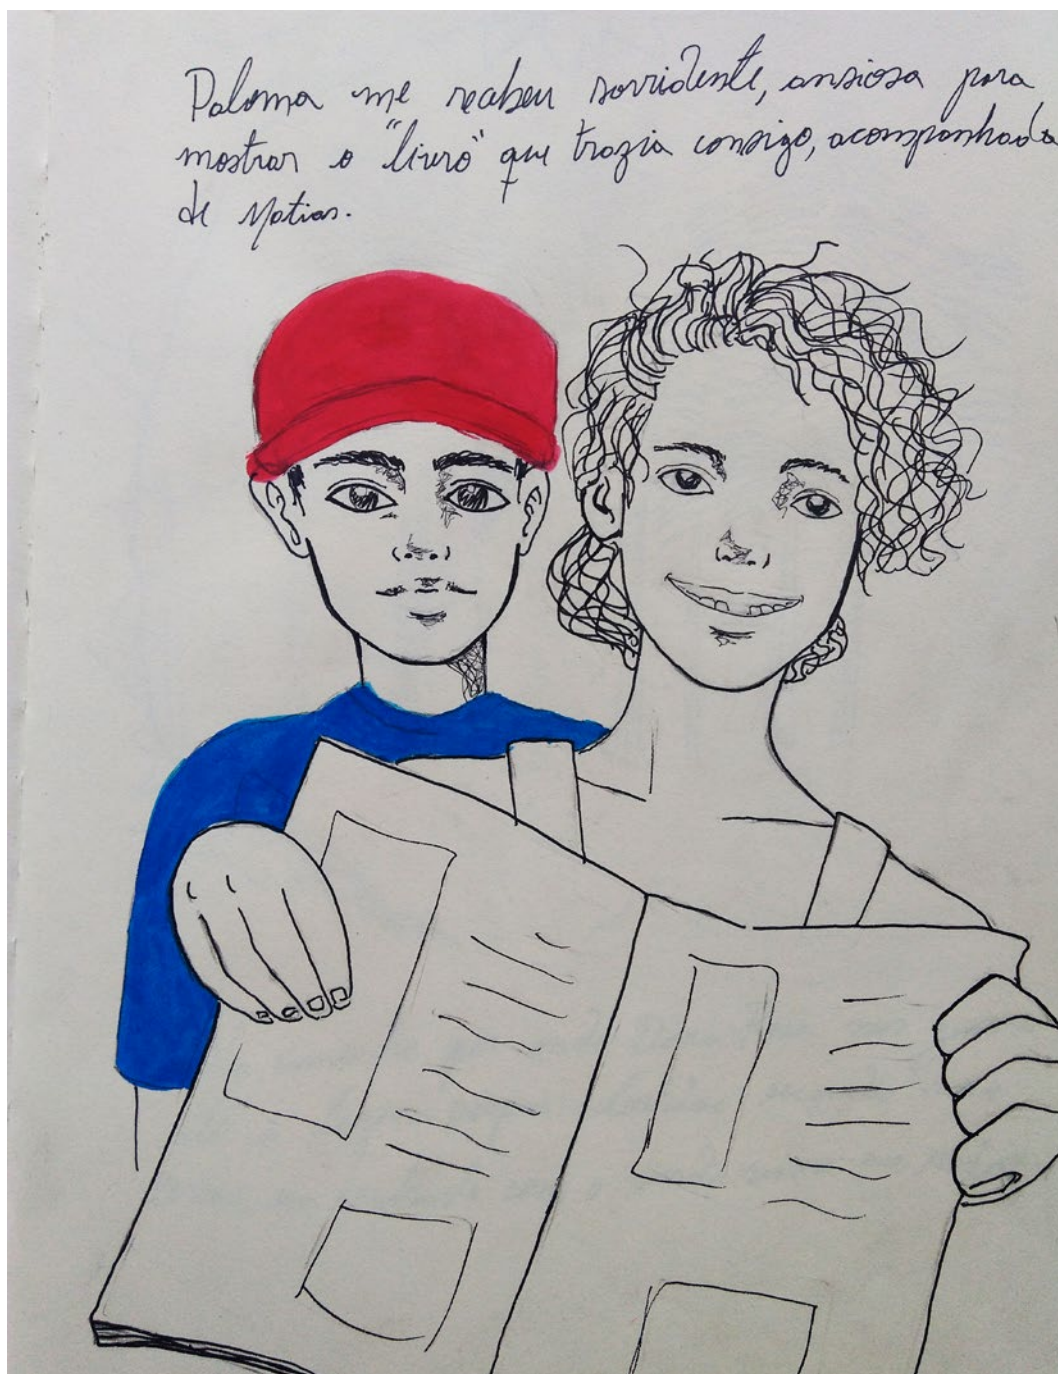 Paloma me recebeu sorridente, ansiosa para
mostrar o "livro" que trazia consigo, acompanhada
de Matias.